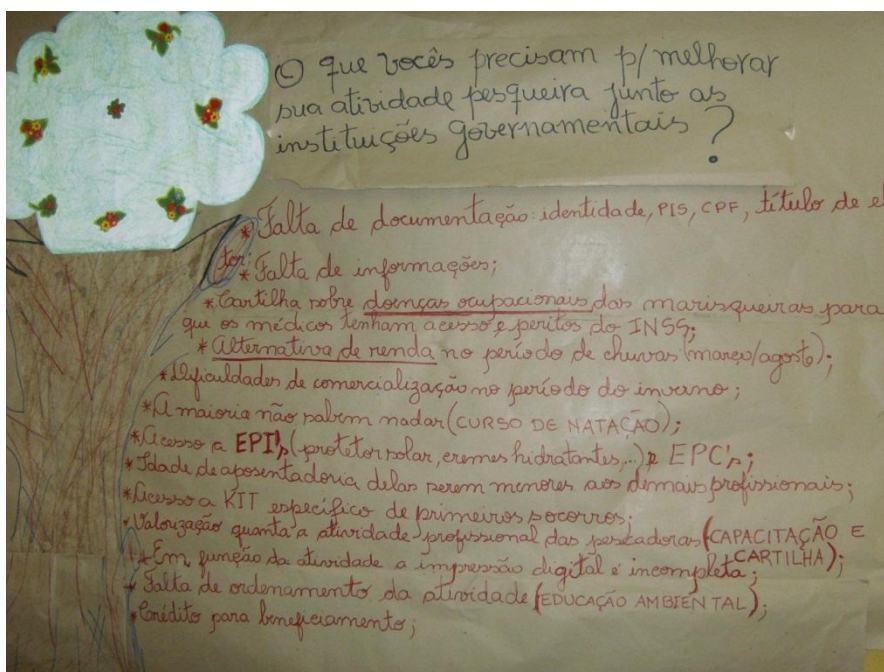 O que vocês precisam p/ melhorar
sua atividade pesqueira junto as
instituições governamentais?
* Falta de documentação: identidade, PIS, CPF, título de elei
tor;
* Falta de informações;
* Cartilha sobre doenças ocupacionais das marisqueiras para
que os médicos tenham acesso e peritos do INSS;
* Alternativa de renda no período de chuvas (março/agosto);
* Dificuldades de comercialização no período do inverno;
* A maioria não sabem nadar (CURSO DE NATAÇÃO);
* Acesso a EPI's (protetor solar, cremes hidratantes,...) e EPC's;
* Idade de aposentadoria delas serem menores aos demais profissionais;
* Acesso a KIT específico de primeiros socorros;
* Valorização quanta a atividade profissional das pescadoras (CAPACITAÇÃO E
CARTILHA);
* Em função da atividade a impressão digital é incompleta;
* Falta de ordenamento da atividade (EDUCAÇÃO AMBIENTAL);
* Crédito para beneficiamento;